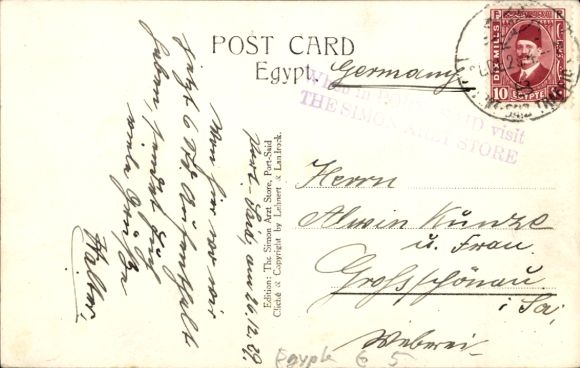 POST CARD
Egypt.
Germany
When in PORT SAID visit
THE SIMON ARZT STORE
DIX MILLS
10 EGYPTE
Herrn
Alwin Kunze
u. Frau.
Grossschönau
i. Sa;
Weberei
Edition: The Simon Arzt Store, Port-Said
Cliché & Copyright by Lehnert & Landrock.
Port-Said, am 26.12.29.
Von hier wo wir
jetzt 6 Std. Aufenthalt
haben, sendet Euch
viele Grüße
Walter.
Egypte 6 5